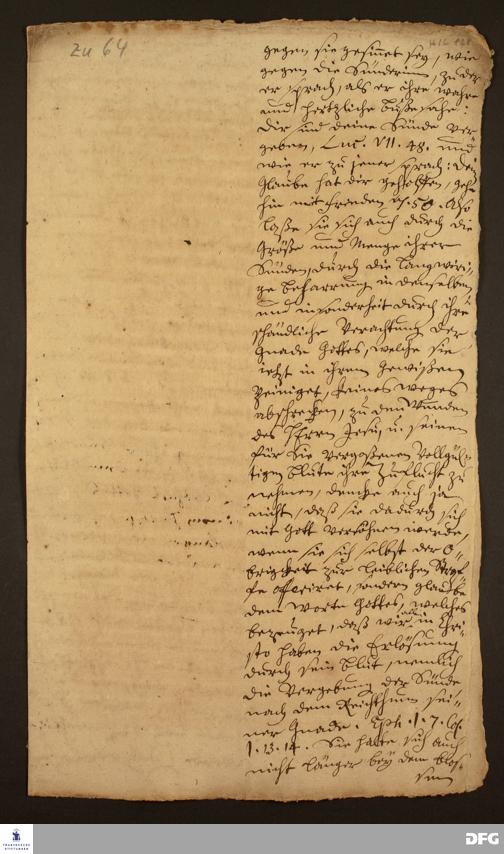 zu 64
gegen sie gesinnet sey, wie
gegen die Sünderinn, zu der
er sprach, als er ihre wahre
und hertzliche Buße sahe:
Dir sind deine Sünde ver-
geben, Luc. VII. 48. und
wie er zu jener sprach: Dein
Glaube hat dir geholffen, gehe
hin mit Frieden v. 50. Also
laße sie sich auch durch die
Größe und Menge ihrer
Sünden, durch die langwiri-
ge beharrung in denselben
und insonderheit durch ihre
schändliche Verachtung der
Gnade Gottes, welche sie
jetzt in ihrem Gewißen
peiniget, keines weges
abschrecken, zu den Wunden
des HErrn Jesu, u. seinem
für Sie vergoßenen Vollgül-
tigen Blute ihre Zuflucht zu
nehmen, dencke auch ja
nicht, daß sie dadurch sich
mit Gott versöhnen werde,
wenn sie sich selbst der O-
brigkeit zur leiblichen Straf-
fe offeriret, sondern glaube
dem Worte Gottes, welches
bezeuget, daß wir in Chri-
sto haben die Erlösung
durch sein Blut, nemlich
die Vergebung der Sünde
nach dem Reichthum sei-
ner Gnade. Eph. I. 7. Col.
1. 13. 14. Sie halte sich auch
nicht länger bey dem blos-
sen
FRANCKESCHE
STIFTUNGEN
DFG